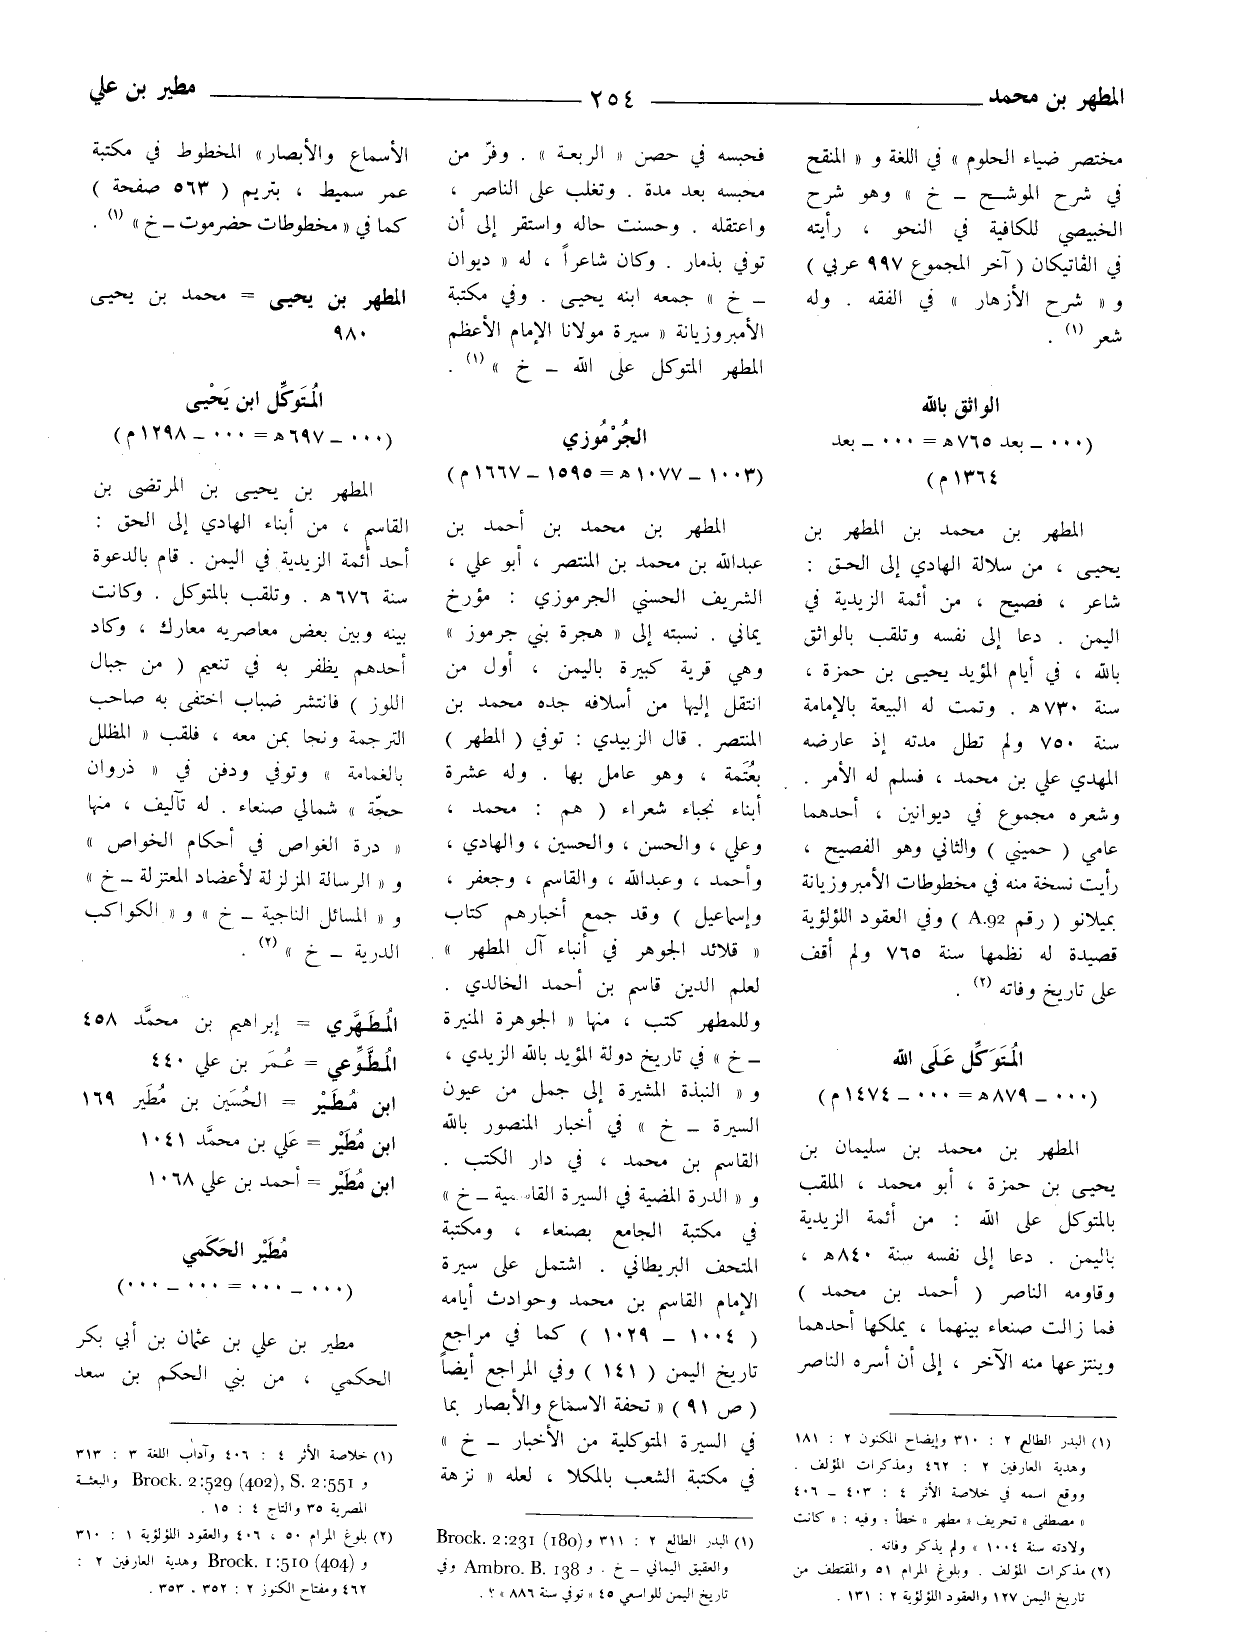 المطهر بن محمد
٢٥٤
مطير بن علي
مختصر ضياء الحلوم » في اللغة و « المنقح
في شرح الموشح ـ خ » وهو شرح
الخبيصي للكافية في النحو ، رأيته
في الڤاتيكان ( آخر المجموع ٩٩٧ عربي )
و « شرح الأزهار » في الفقه . وله
شعر (١) .
الواثق بالله
(٠٠٠ ـ بعد ٧٦٥ هـ = ٠٠٠ ـ بعد
١٣٦٤ م)
المطهر بن محمد بن المطهر بن
يحيى ، من سلالة الهادي إلى الحق :
شاعر ، فصيح ، من أئمة الزيدية في
اليمن . دعا إلى نفسه وتلقب بالواثق
بالله ، في أيام المؤيد يحيى بن حمزة ،
سنة ٧٣٠ هـ . وتمت له البيعة بالإمامة
سنة ٧٥٠ ولم تطل مدته إذ عارضه
المهدي علي بن محمد ، فسلم له الأمر .
وشعره مجموع في ديوانين ، أحدهما
عامي ( حميني ) والثاني وهو الفصيح ،
رأيت نسخة منه في مخطوطات الأمبروزيانة
بميلانو ( رقم A.92 ) وفي العقود اللؤلؤية
قصيدة له نظمها سنة ٧٦٥ ولم أقف
على تاريخ وفاته (٢) .
المُتَوَكِّل عَلَى الله
(٠٠٠ ـ ٨٧٩ هـ = ٠٠٠ ـ ١٤٧٤ م)
المطهر بن محمد بن سليمان بن
يحيى بن حمزة ، أبو محمد ، الملقب
بالمتوكل على الله : من أئمة الزيدية
باليمن . دعا إلى نفسه سنة ٨٤٠ هـ ،
وقاومه الناصر ( أحمد بن محمد )
فما زالت صنعاء بينهما ، يملكها أحدهما
وينتزعها منه الآخر ، إلى أن أسره الناصر
(١) البدر الطالع ٢ : ٣١٠ وإيضاح المكنون ٢ : ١٨١
وهدية العارفين ٢ : ٤٦٢ ومذكرات المؤلف .
ووقع اسمه في خلاصة الأثر ٤ : ٤٠٣ ـ ٤٠٦
« مصطفى » تحريف « مطهر » خطأ ، وفيه : « كانت
ولادته سنة ١٠٠٤ » ولم يذكر وفاته .
(٢) مذكرات المؤلف . وبلوغ المرام ٥١ والمقتطف من
تاريخ اليمن ١٢٧ والعقود اللؤلؤية ٢ : ١٣١ .
فحبسه في حصن « الربعة » . وفرّ من
محبسه بعد مدة . وتغلب على الناصر ،
واعتقله . وحسنت حاله واستقر إلى أن
توفي بذمار . وكان شاعراً ، له « ديوان
ـ خ » جمعه ابنه يحيى . وفي مكتبة
الأمبروزيانة « سيرة مولانا الإمام الأعظم
المطهر المتوكل على الله ـ خ » (١) .
الجُرْمُوزي
(١٠٠٣ ـ ١٠٧٧ هـ = ١٥٩٥ ـ ١٦٦٧ م)
المطهر بن محمد بن أحمد بن
عبدالله بن محمد بن المنتصر ، أبو علي ،
الشريف الحسني الجرموزي : مؤرخ
يماني . نسبته إلى « هجرة بني جرموز »
وهي قرية كبيرة باليمن ، أول من
انتقل إليها من أسلافه جده محمد بن
المنتصر . قال الزبيدي : توفي ( المطهر )
بعُتَمة ، وهو عامل بها . وله عشرة
أبناء نجباء شعراء ( هم : محمد ،
وعلي ، والحسن ، والحسين ، والهادي ،
وأحمد ، وعبدالله ، والقاسم ، وجعفر ،
وإسماعيل ) وقد جمع أخبارهم كتاب
« قلائد الجوهر في أنباء آل المطهر »
لعلم الدين قاسم بن أحمد الخالدي .
وللمطهر كتب ، منها « الجوهرة المنيرة
ـ خ » في تاريخ دولة المؤيد بالله الزيدي ،
و « النبذة المشيرة إلى جمل من عيون
السيرة ـ خ » في أخبار المنصور بالله
القاسم بن محمد ، في دار الكتب .
و « الدرة المضية في السيرة القاسمية ـ خ »
في مكتبة الجامع بصنعاء ، ومكتبة
المتحف البريطاني . اشتمل على سيرة
الإمام القاسم بن محمد وحوادث أيامه
( ١٠٠٤ ـ ١٠٢٩ ) كما في مراجع
تاريخ اليمن ( ١٤١ ) وفي المراجع أيضاً
( ص ٩١ ) « تحفة الاسماع والأبصار بما
في السيرة المتوكلية من الأخبار ـ خ »
في مكتبة الشعب بالمكلا ، لعله « نزهة
(١) البدر الطالع ٢ : ٣١١ و Brock. 2:231 (180)
والعقيق اليماني ـ خ . و Ambro. B. 138 وفي
تاريخ اليمن للواسعي ٤٥ « توفي سنة ٨٨٦ » ؟ .
الأسماع والأبصار» المخطوط في مكتبة
عمر سميط ، بتريم ( ٥٦٣ صفحة )
كما في « مخطوطات حضرموت ـ خ » (١) .
المطهر بن يحيى = محمد بن يحيى
٩٨٠
المُتَوكِّل ابن يَحْيى
(٠٠٠ ـ ٦٩٧ هـ = ٠٠٠ ـ ١٢٩٨ م)
المطهر بن يحيى بن المرتضى بن
القاسم ، من أبناء الهادي إلى الحق :
أحد أئمة الزيدية في اليمن . قام بالدعوة
سنة ٦٧٦ هـ . وتلقب بالمتوكل . وكانت
بينه وبين بعض معاصريه معارك ، وكاد
أحدهم يظفر به في تنعيم ( من جبال
اللوز ) فانتشر ضباب اختفى به صاحب
الترجمة ونجا بمن معه ، فلقب « المظلل
بالغمامة » وتوفي ودفن في « ذروان
حجّة » شمالي صنعاء . له تآليف ، منها
« درة الغواص في أحكام الخواص »
و « الرسالة المزلزلة لأعضاد المعتزلة ـ خ »
و « المسائل الناجية ـ خ » و « الكواكب
الدرية ـ خ » (٢) .
المُطَهَّري = إبراهيم بن محمَّد ٤٥٨
المُطَّوِّعي = عُمَر بن علي ٤٤٠
ابن مُطَيْر = الحُسَين بن مُطَير ١٦٩
ابن مُطَيْر = عَلي بن محمَّد ١٠٤١
ابن مُطَيْر = أحمد بن علي ١٠٦٨
مُطَيْر الحَكَمي
(٠٠٠ ـ ٠٠٠ = ٠٠٠ ـ ٠٠٠)
مطير بن علي بن عثمان بن أبي بكر
الحكمي ، من بني الحكم بن سعد
(١) خلاصة الأثر ٤ : ٤٠٦ وآداب اللغة ٣ : ٣١٣
و Brock. 2:529 (402), S. 2:551 والبعثة
المصرية ٣٥ والتاج ٤ : ١٥ .
(٢) بلوغ المرام ٥٠ ، ٤٠٦ والعقود اللؤلؤية ١ : ٣١٠
و Brock. 1:510 (404) وهدية العارفين ٢ :
٤٦٢ ومفتاح الكنوز ٢ : ٣٥٢ ، ٣٥٣ .